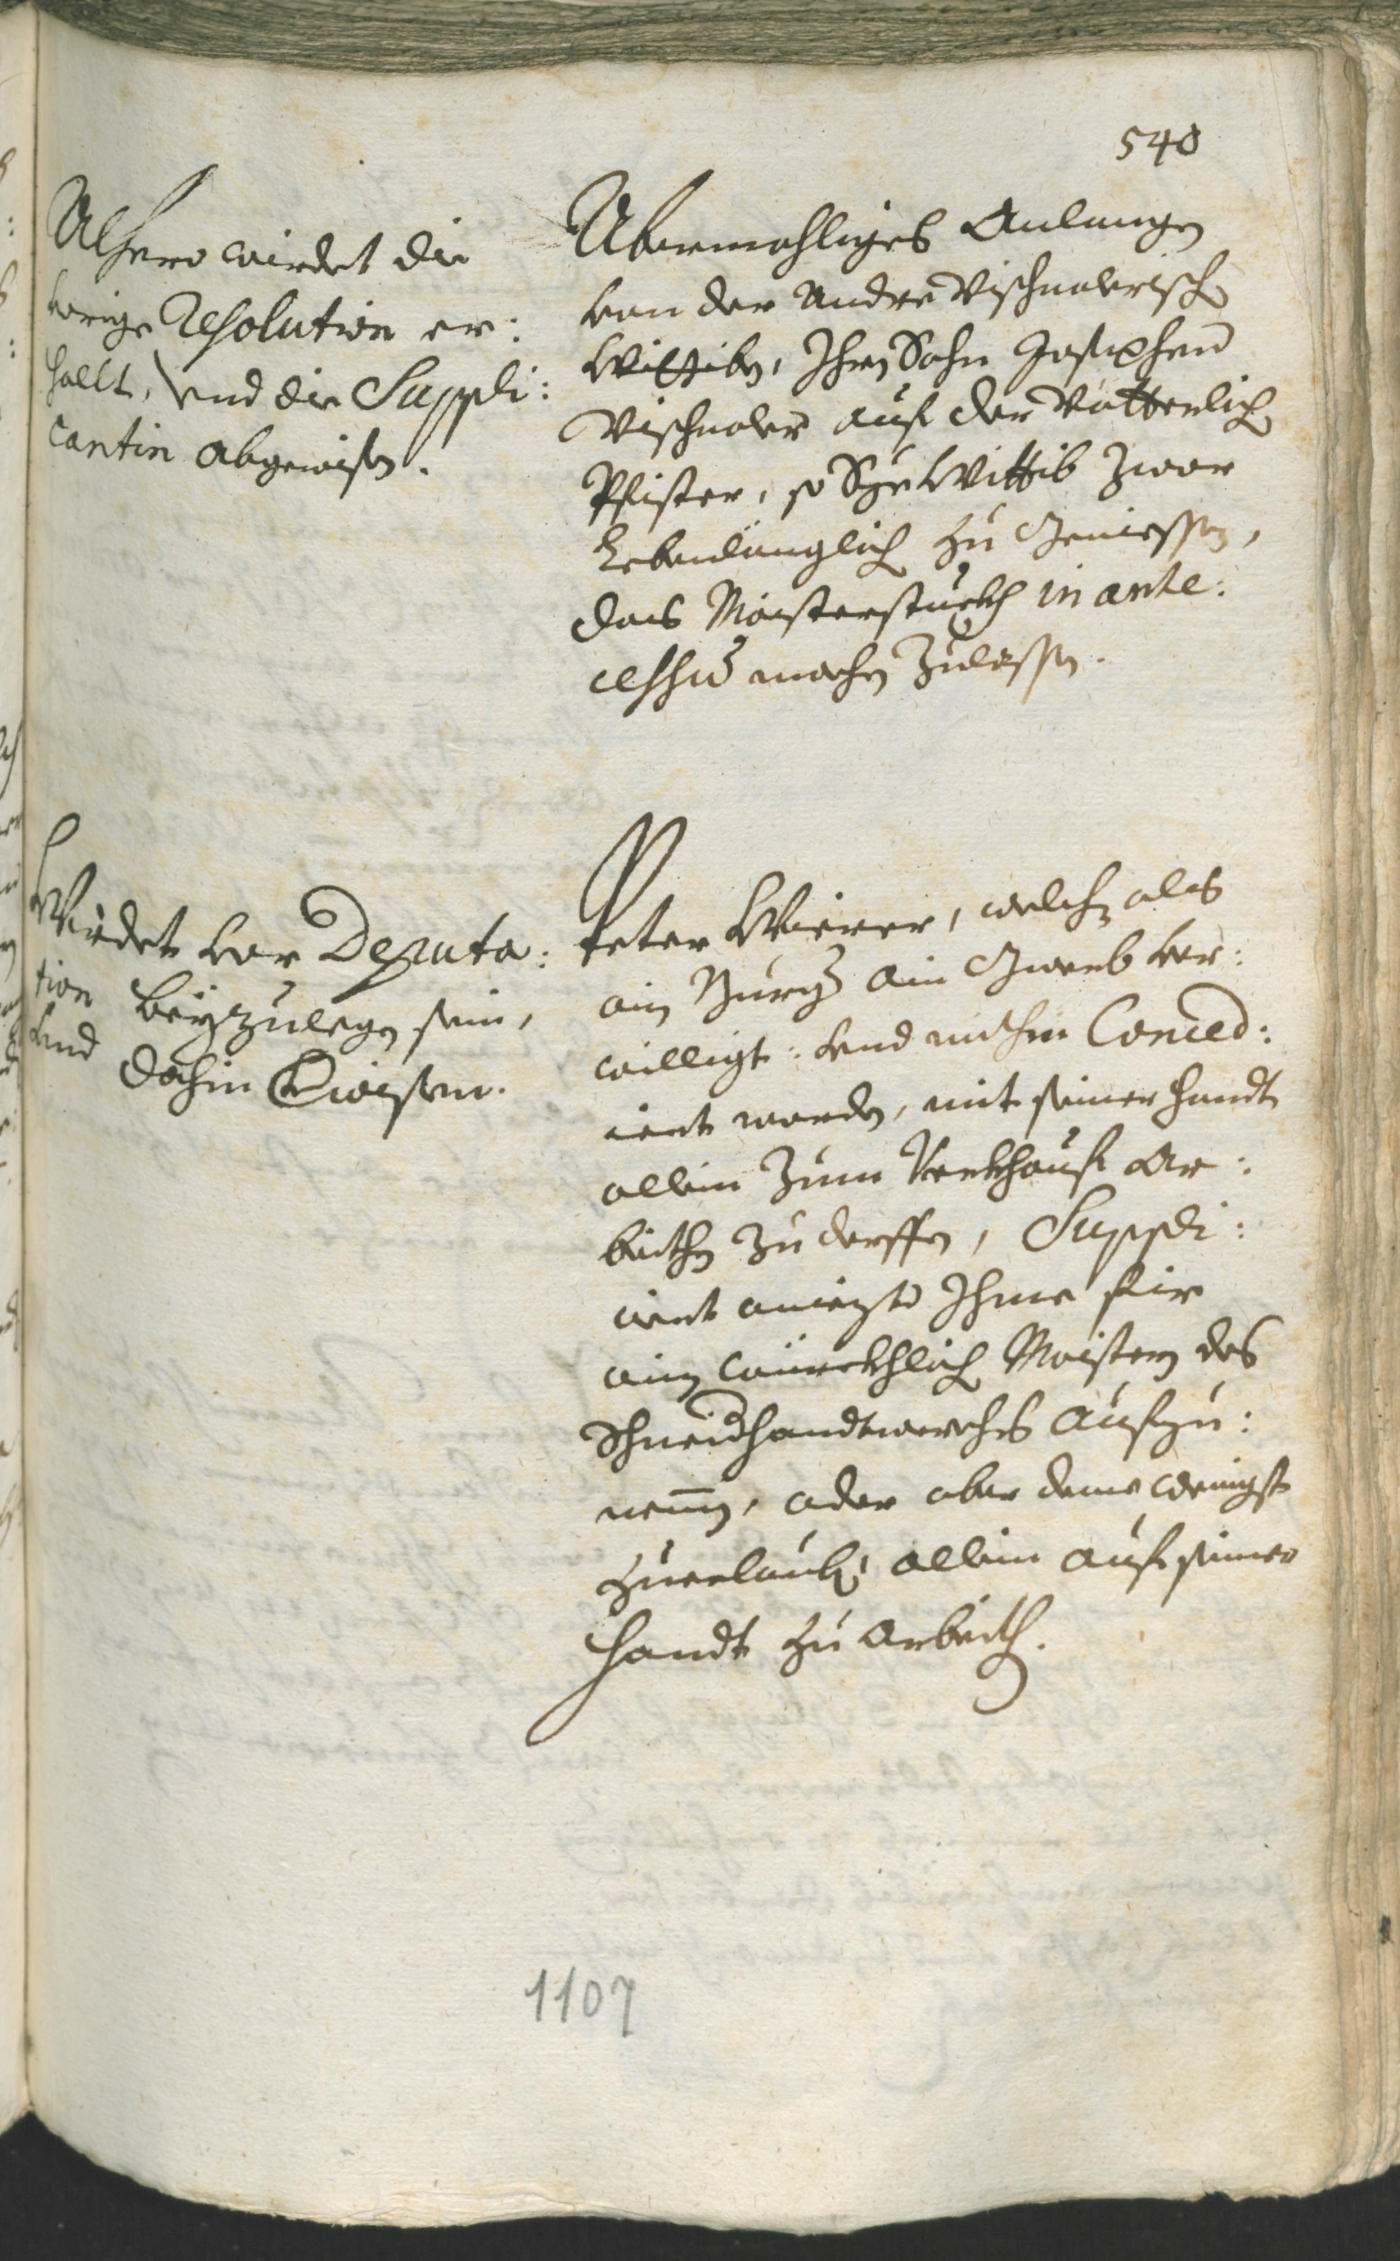 540
Alhero wirdet die
vorige Resolution er:
hallt, vnd die Suppli:
cantin abgewisen.
Abermahliges Anlangen
von der Andre Vischnalerisch
Wittiben, Ihren Sohn Josephen
Vischnaler auf der Vätterlich
Pfister, so Sye Wittib zwar
Lebenlänglich zu Geniessen,
das Maisterstuckh in ante:
cessum machen zulassen.
Wirdet vor Deputa:
tion beyzulegen sein,
vnd dahin
Peter Wierer, welcher als
ain Burger ain Gwerb ver:
willigt: vnd mithin Conced:
iert worden, mit seiner handt
allein zum Verkhauf Ar:
beithen zu derffen, Suppli:
ciert aniezto Ihme für
ainen würckhlich Maistern des
Schneidhandtwerchs aufzu:
nemen, oder aber deme wenigst
zuerlauben allein auf seiner
handt zu Arbeith.
1107